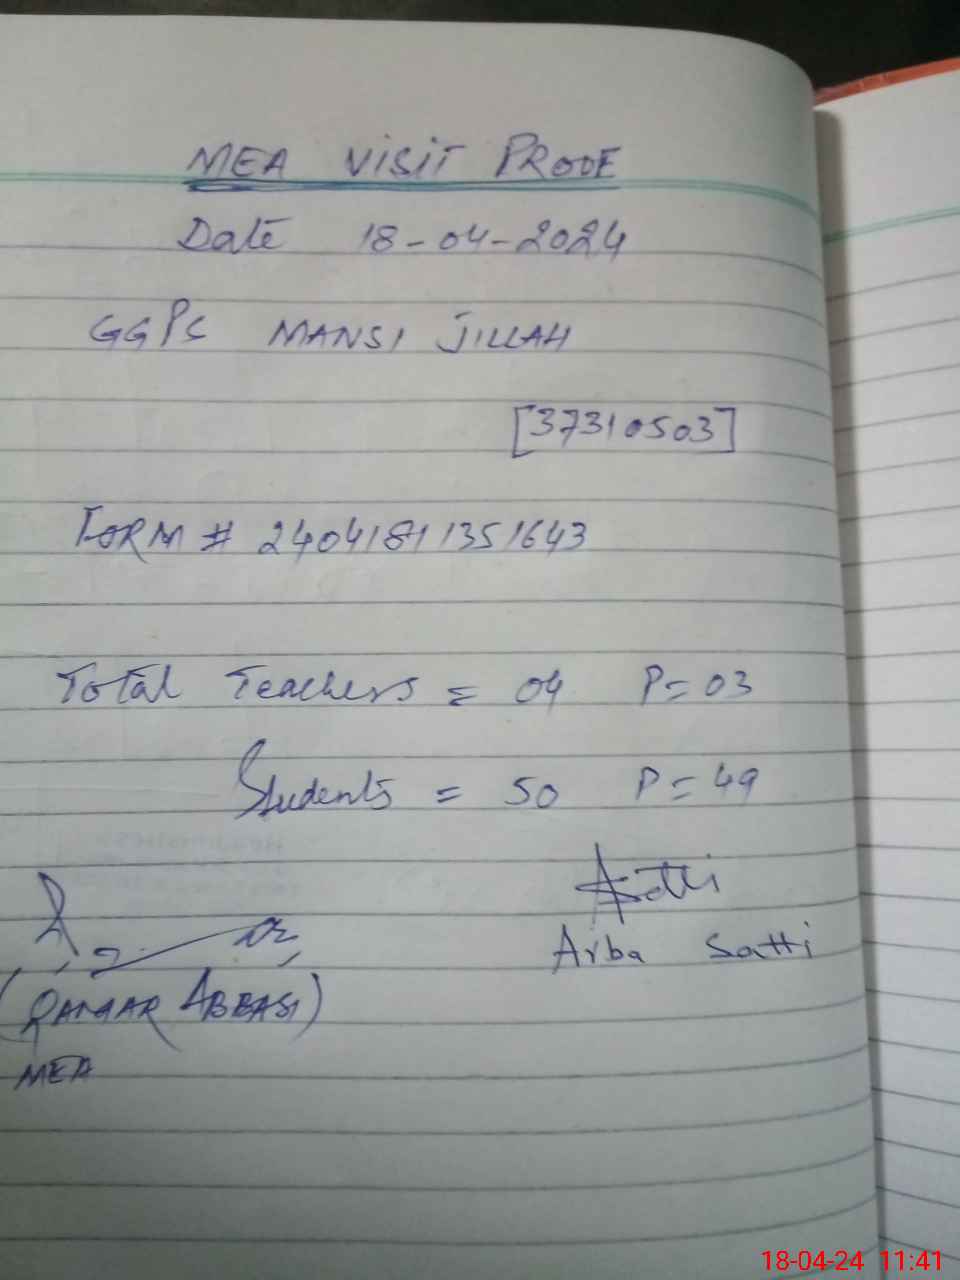 MEA VISIT PROOF
Date 18-04-2024
GGPS MANSI JILLAH
[37310503]
FORM # 24041811351643
Total Teachers = 04 P=03
Students = 50 P=49
Satti
Arba Satti
(QAMAR ABBASI)
MEA
18-04-24 11:41